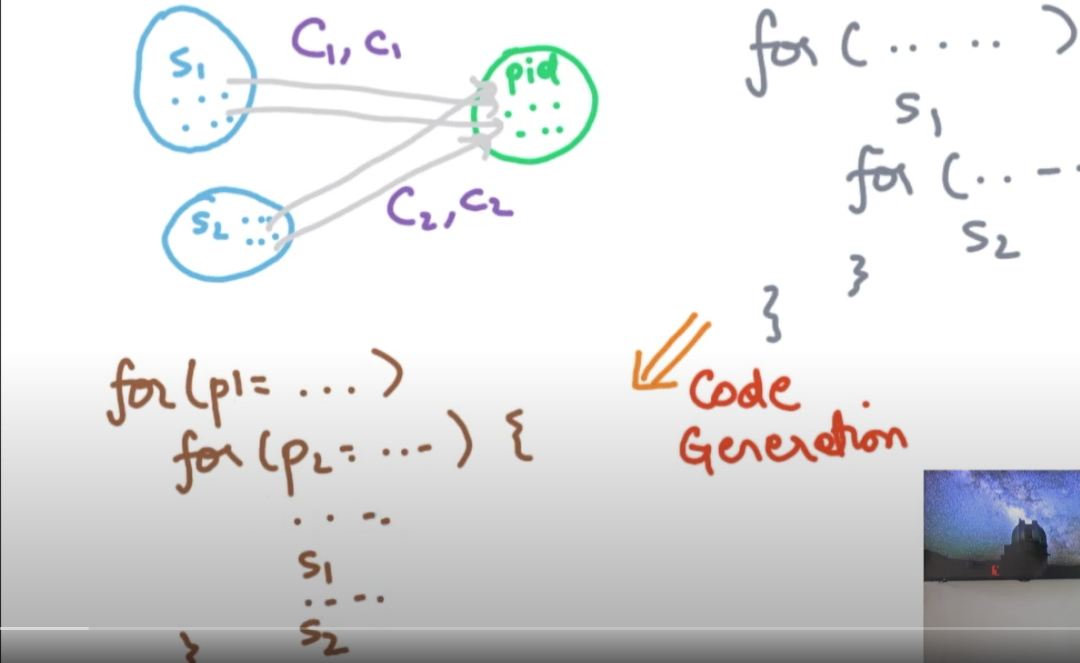 S1
C1, c1
pid
S2
C2, c2
for ( ..... )
S1
for (.. - -
S2
}
}
Code
Generation
for (p1= ... )
for (p2= ... ) {
. . - .
S1
. - - .
S2
}